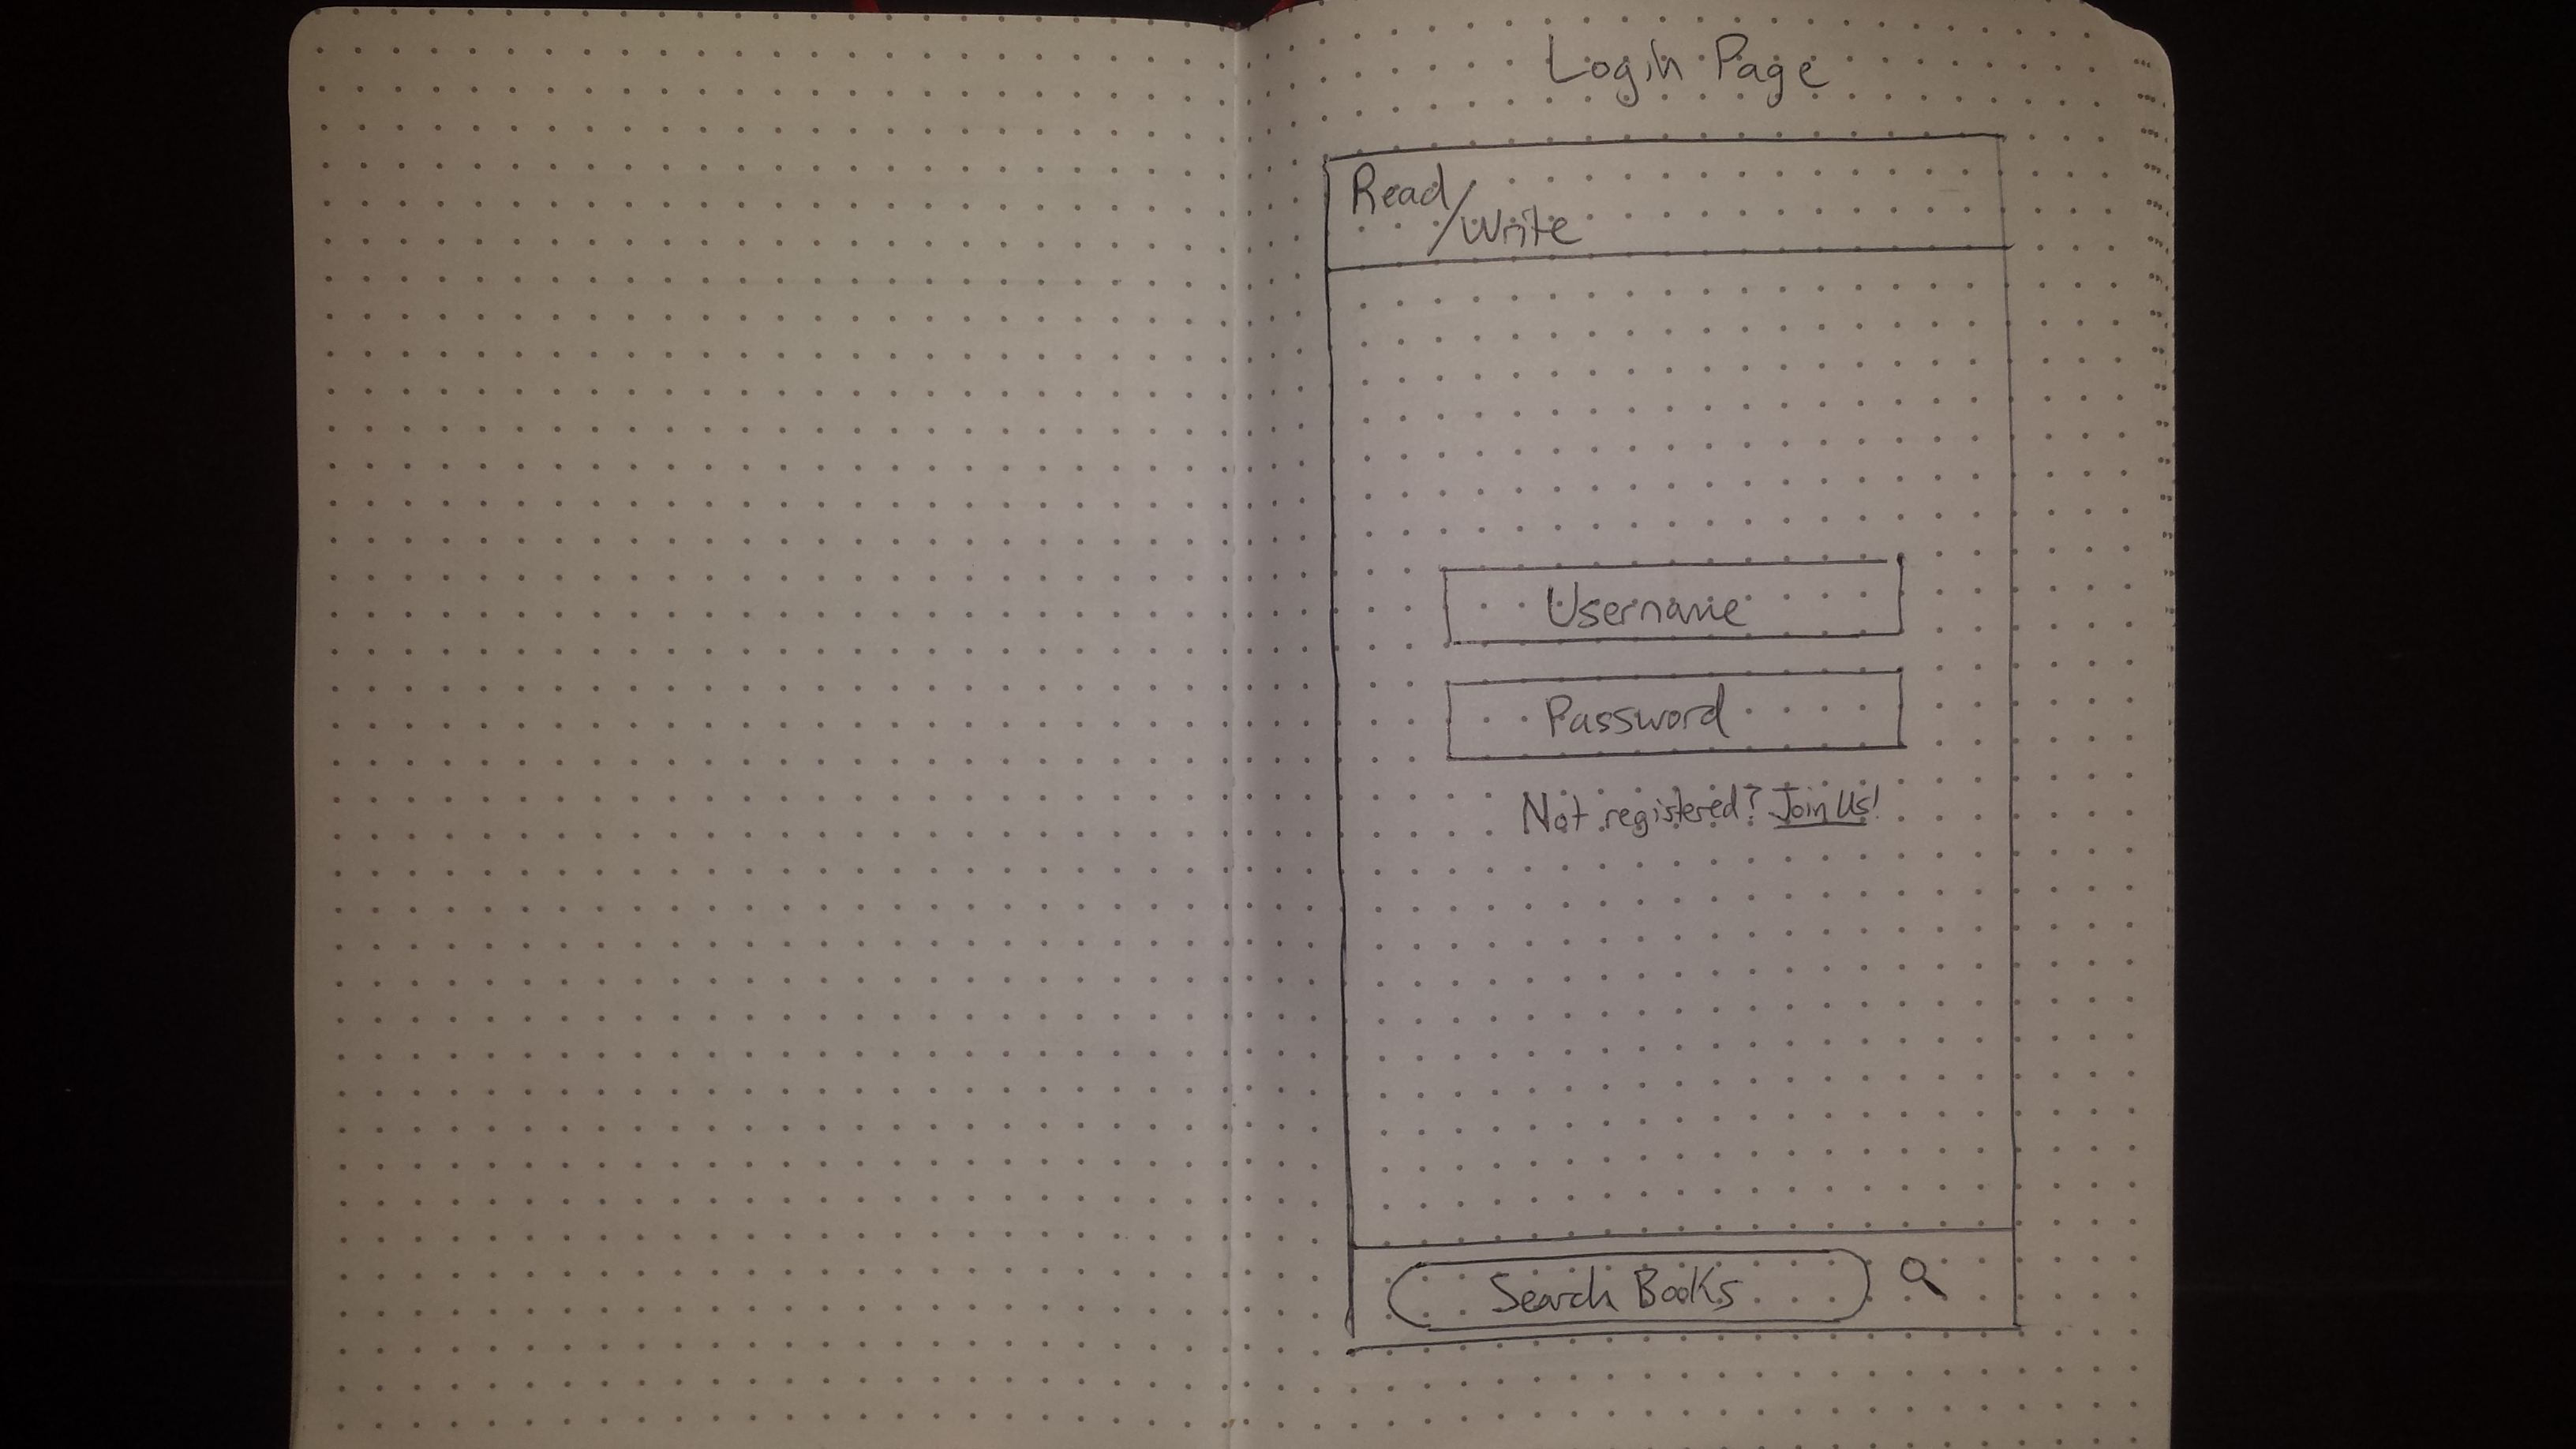 Login Page
Read
/Write
Username
Password
Not registered? Join Us!
Search Books